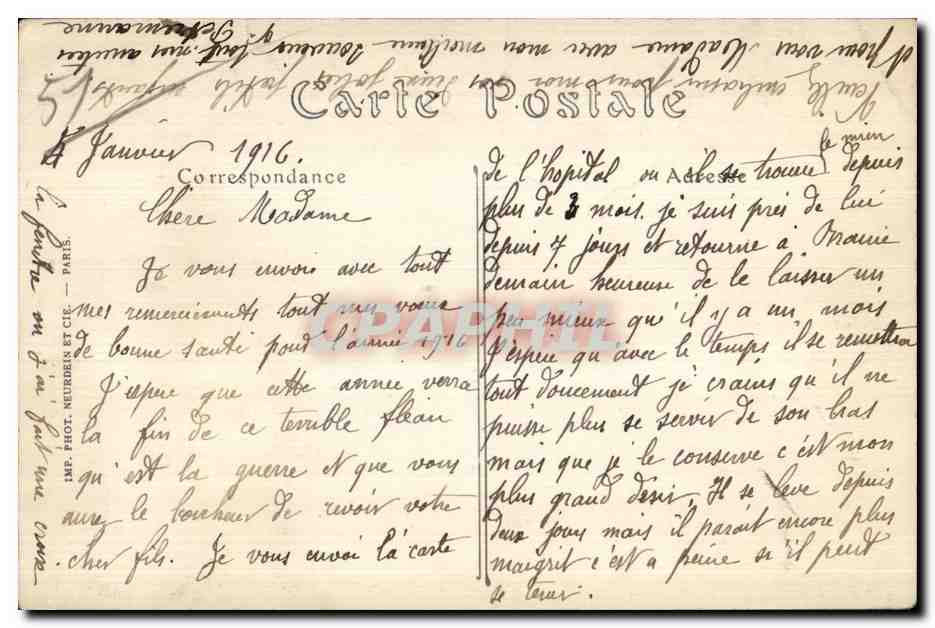 Carte Postale
Correspondance
Adresse
4 Janvier 1916.
Chère Madame
Je vous envoie avec tout
mes remerciements tout mes vœux
de bonne santé pour l'année 1916
J'espere que cette année verra
la fin de ce terrible fléau
qu'est la guerre et que vous
aurez le bonheur de revoir votre
cher fils. Je vous envoi la carte
de l'hopital ou il se trouve le mien depuis
plus de 3 mois. je suis près de lui
depuis 7 jours et retourne à
demain heureuse de le laisser un
peu mieux qu'il y a un mois
J'espere qu'avec le temps il se remettra
tout doucement je crains qu'il ne
puisse plus se servir de son bras
mais que je le conserve c'est mon
plus grand désir. Il se leve depuis
deux jours mais il parait encore plus
maigrit c'est a peine si il peut
se tenir.
la fenêtre ou j'ai fait une croix
Veuillez embrasser pour moi vos deux jolies petits enfants
et pour vous Madame avec mon meilleur souvenir et tout mes amitiés
51
IMP. PHOT. NEURDEIN ET CIE. — PARIS.
CPAPHIL